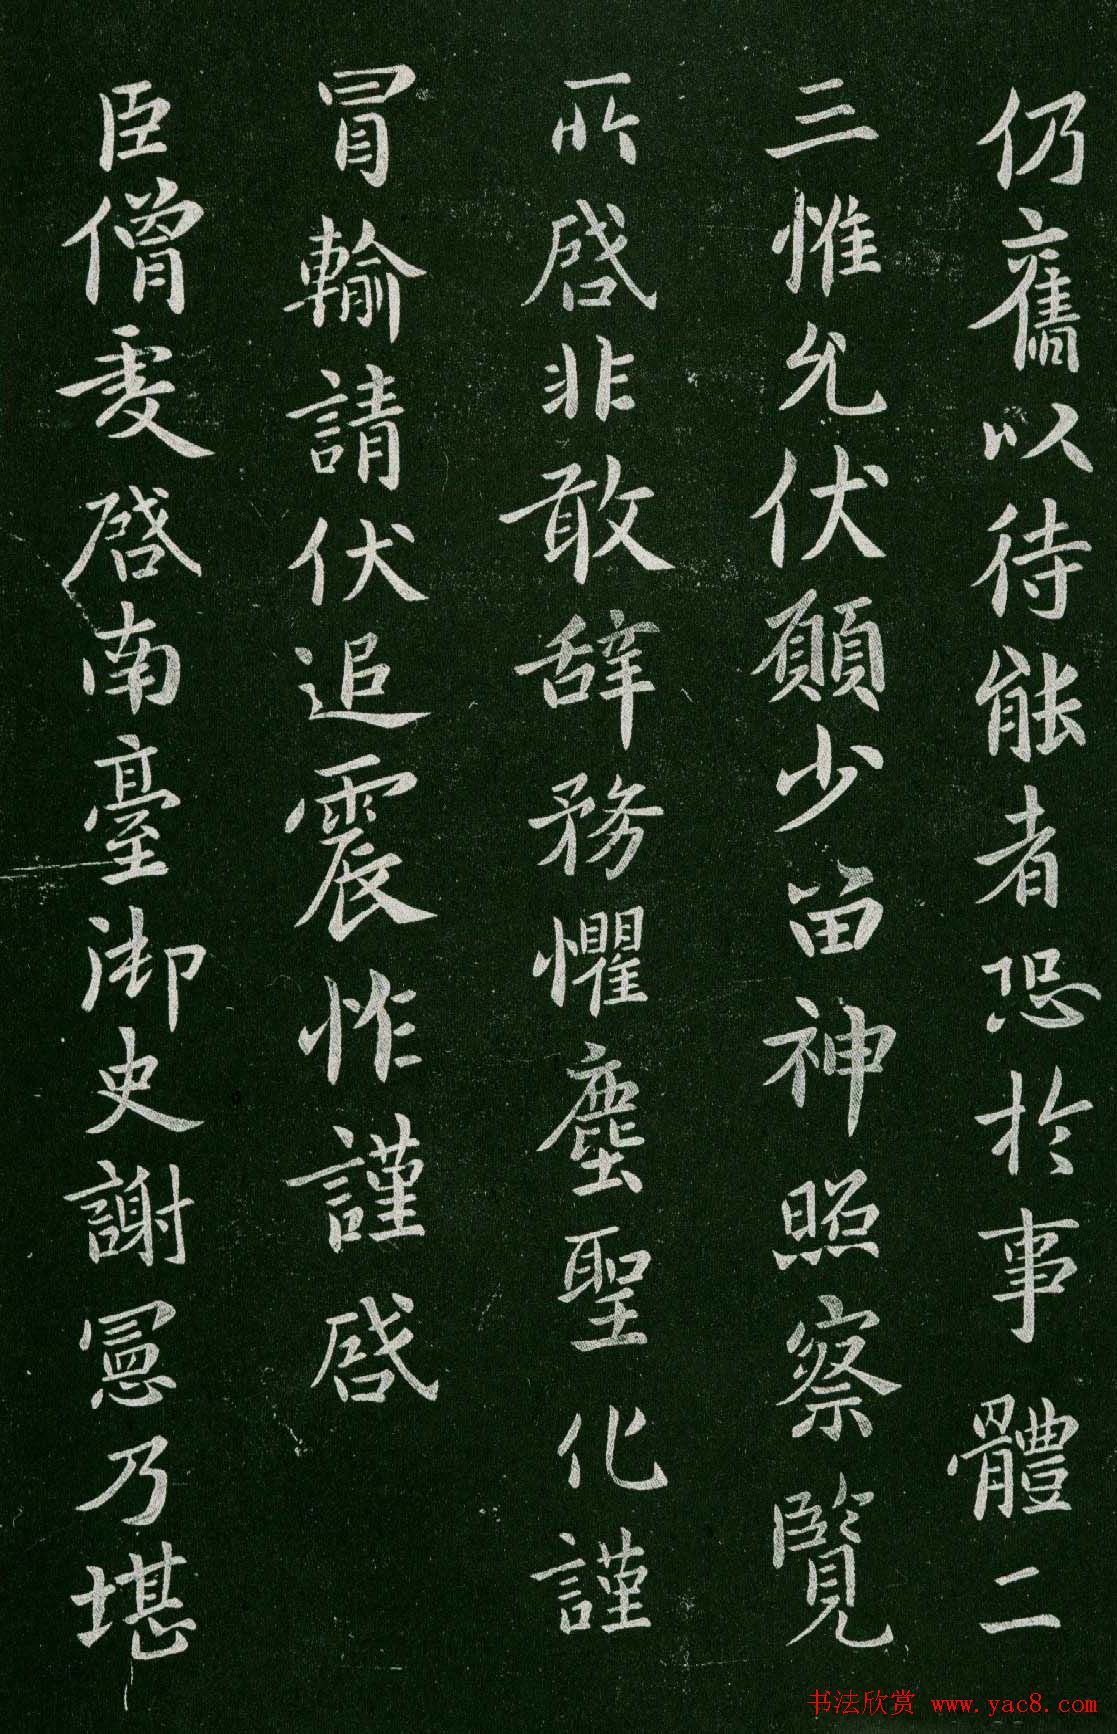 仍舊以待能者恐於事體二
三惟允伏願少留神照察覽
所啓非敢辞務懼塵聖化謹
冒輸請伏追震怍謹啓
臣僧虔啓南臺御史謝憲乃堪
书法欣赏 www.yac8.com